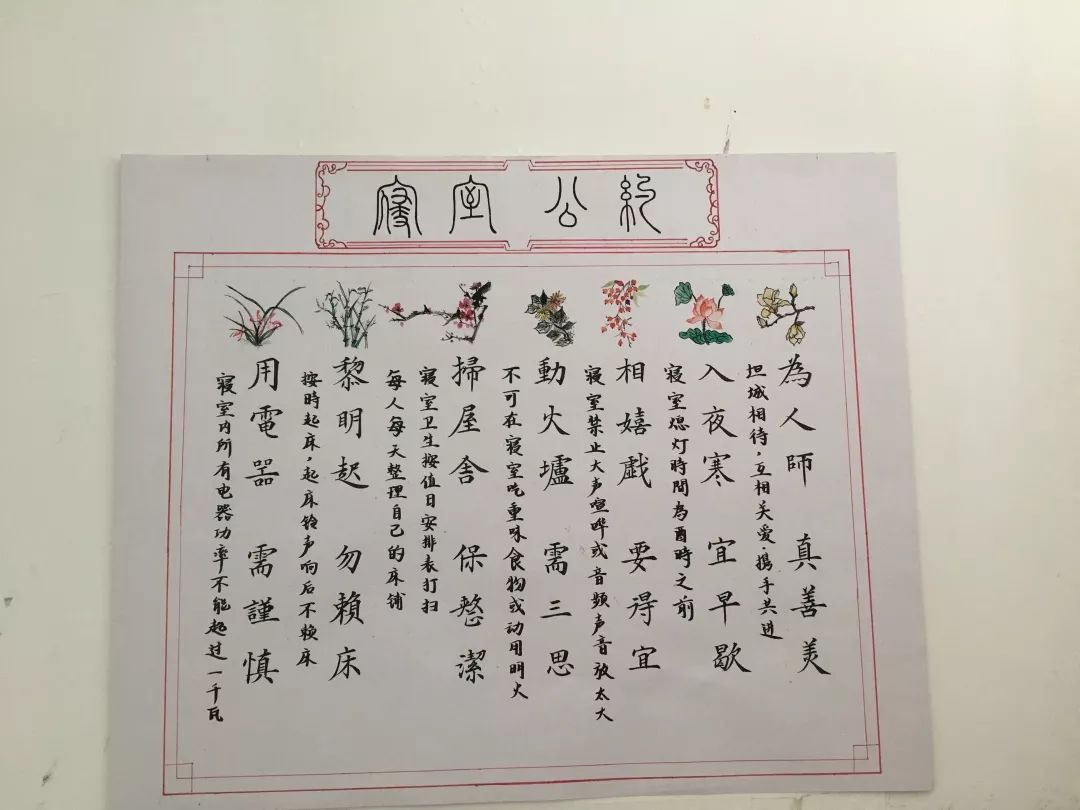 寢室公約
為人師 真善美
坦城相待，互相关爱.携手共进
入夜寒 宜早歇
寝室熄灯時間為酉時之前
相嬉戯 要得宜
寝室禁止大声喧哗或音频声音放太大
動火爐 需三思
不可在寝室吃重味食物或动用明火
掃屋舍 保整潔
寝室卫生按值日安排表打扫
每人每天整理自己的床铺
黎明起 勿賴床
按時起床，起床铃声响后不赖床
用電器 需謹慎
寝室内所有电器功率不能超过一千瓦